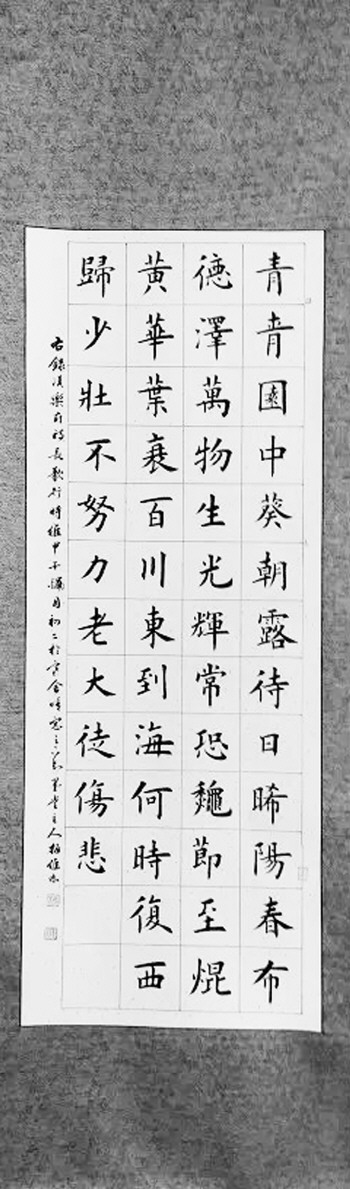 青青園中葵朝露待日晞陽春布
德澤萬物生光輝常恐龝節至焜
黃華葉衰百川東到海何時復西
歸少壯不努力老大徒傷悲
右錄漢樂府詩長歌行時維甲子臘月初二於舍晴窓之主人